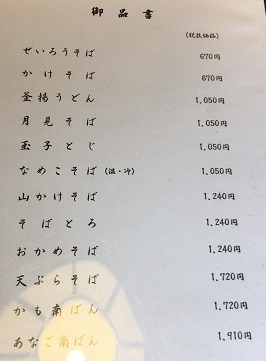 御品書
(税抜価格)
せいろうそば 670円
かけそば 670円
釜揚うどん 1.050円
月見そば 1.050円
玉子とじ 1.050円
なめこそば(温・冷) 1.050円
山かけそば 1.240円
そばとろ 1.240円
おかめそば 1.240円
天ぷらそば 1.720円
かも南ばん 1.720円
あなご南ばん 1.910円